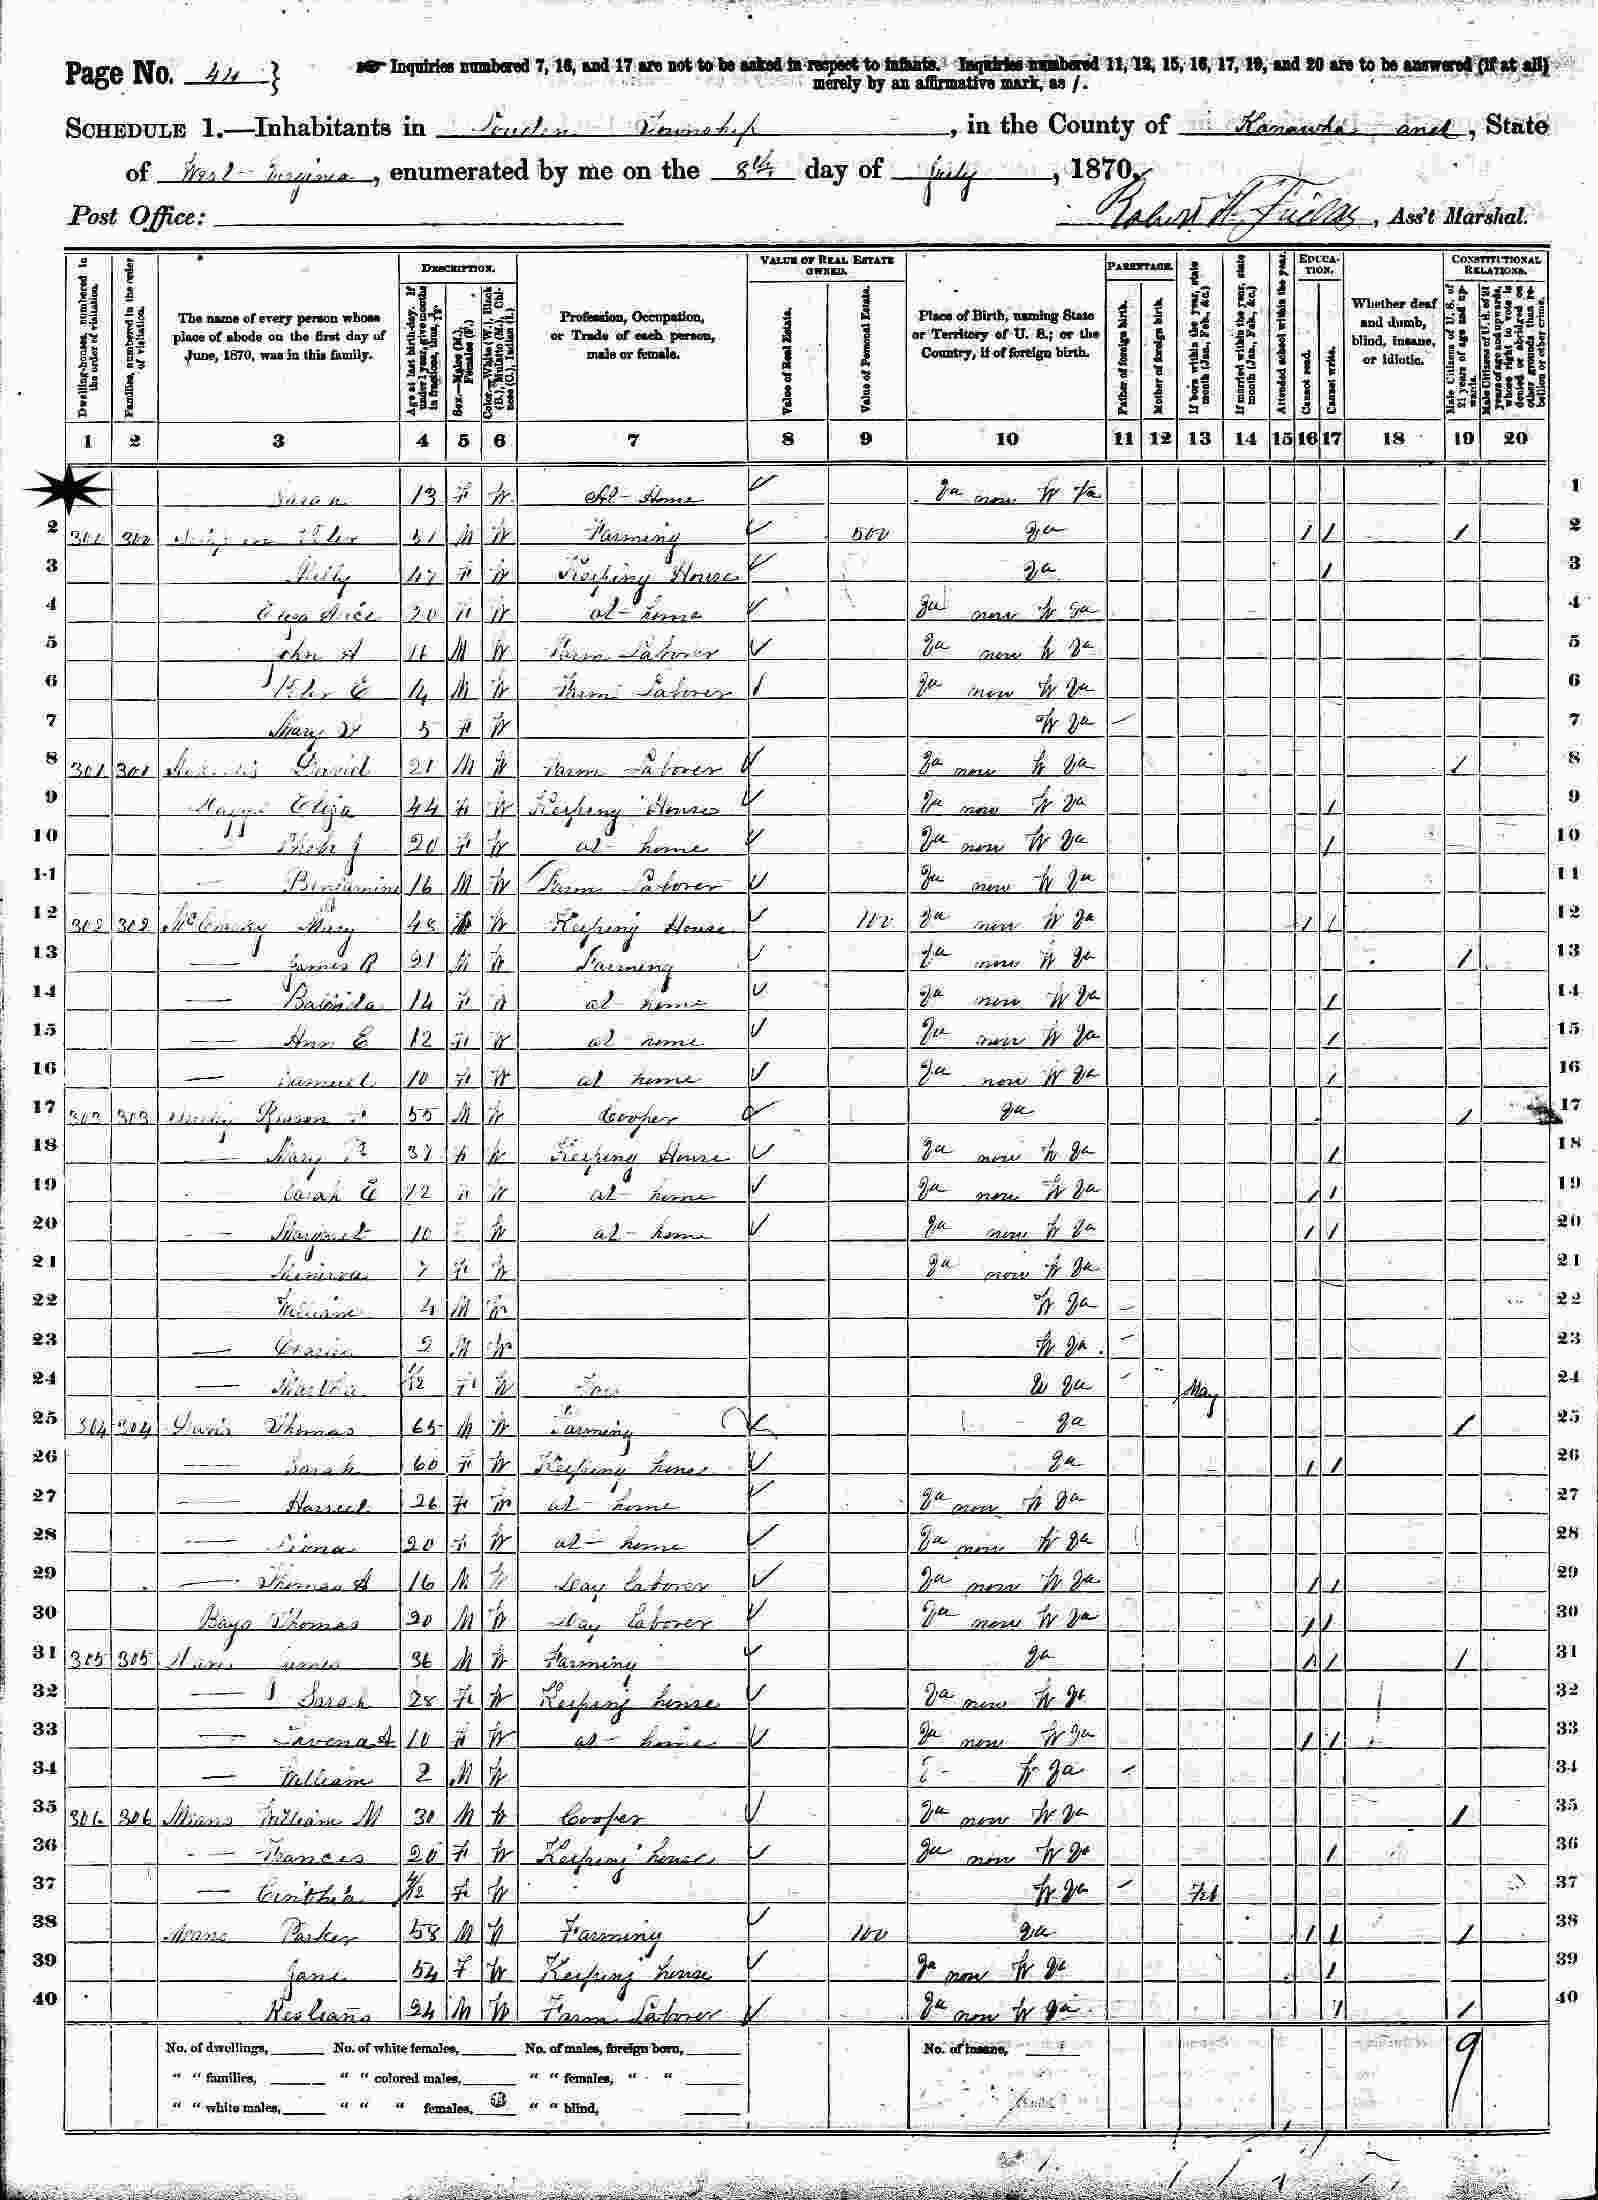 Page No. 44 } Inquiries numbered 7, 16, and 17 are not to be asked in respect to infants. Inquiries numbered 11, 12, 15, 16, 17, 19, and 20 are to be answered (if at all)
merely by an affirmative mark, as /.
SCHEDULE 1.—Inhabitants in Township, in the County of Kanawha and, State
of West Virginia, enumerated by me on the 8th day of July, 1870.
Post Office: Robert, Ass't Marshal.
Dwelling-houses, numbered in the order of visitation.
Families, numbered in the order of visitation.
The name of every person whose place of abode on the first day of June, 1870, was in this family.
DESCRIPTION.
Age at last birth-day. If under 1 year, give months in fractions, thus, 3/12.
Sex.—Males (M.), Females (F.)
Color.—White (W.), Black (B.), Mulatto (M.), Chinese (C.), Indian (I.)
Profession, Occupation, or Trade of each person, male or female.
VALUE OF REAL ESTATE OWNED.
Value of Real Estate.
Value of Personal Estate.
Place of Birth, naming State or Territory of U. S.; or the Country, if of foreign birth.
PARENTAGE.
Father of foreign birth.
Mother of foreign birth.
If born within the year, state month (Jan., Feb., &c.)
If married within the year, state month (Jan., Feb., &c.)
Attended school within the year.
EDUCATION.
Cannot read.
Cannot write.
Whether deaf and dumb, blind, insane, or idiotic.
CONSTITUTIONAL RELATIONS.
Male Citizens of U. S. of 21 years of age and upwards.
Male Citizens of U. S. of 21 years of age and upwards, whose right to vote is denied or abridged on other grounds than rebellion or other crime.
1 2 3 4 5 6 7 8 9 10 11 12 13 14 15 16 17 18 19 20
Sarah 13 F W At Home Va now W Va 1
2 300 300 51 M W Farming 500 Va / / / 2
3 47 F W Keeping House Va / 3
4 20 F W at home Va now W Va 4
5 John A M W Farm Laborer Va now W Va 5
6 14 M W Farm Laborer Va now W Va 6
7 Mary 5 F W W Va 7
8 301 301 David 21 M W Farm Laborer Va now W Va / 8
9 Eliza 44 F W Keeping House Va now W Va / 9
10 20 F W at home Va now W Va / 10
11 Benjamine 16 M W Farm Laborer Va now W Va 11
12 302 302 Mary 48 W Keeping House 100 Va now W Va / / 12
13 — James R 21 M W Farming Va now W Va / 13
14 — 14 F W at home Va now W Va / 14
15 — Ann E 12 F W at home Va now W Va / 15
16 — Samuel 10 F W at home Va now W Va / 16
17 303 303 55 M W Cooper Va / 17
18 — Mary 37 F W Keeping House Va now W Va / 18
19 — Sarah E 12 F W at home Va now W Va / / 19
20 — Margaret 10 W at home Va now W Va / / 20
21 — Minerva 7 F W Va now W Va 21
22 — William 4 M W W Va 22
23 — 2 M W W Va 23
24 — Martha F W W Va May 24
25 304 304 Davis Thomas 65 M W Farming Va / 25
26 — Sarah 60 F W Keeping house Va / / 26
27 — Harriet 26 F W at home Va now W Va 27
28 — 20 F W at home Va now W Va 28
29 — Thomas A 16 M W Day Laborer Va now W Va / / 29
30 Bays Thomas 20 M W Day Laborer Va now W Va / / 30
31 305 305 James 36 M W Farming Va / / / 31
32 — Sarah 28 F W Keeping house Va now W Va 32
33 — 10 F W at home Va now W Va / / 33
34 — William 2 M W W Va 34
35 306 306 Means William M 30 M W Cooper Va now W Va / 35
36 — Frances 20 F W Keeping house Va now W Va / 36
37 — Cinthia F W W Va Feb 37
38 Means Parker 58 M W Farming 100 Va / / / 38
39 Jane 54 F W Keeping house Va now W Va / 39
40 24 M W Farm Laborer Va now W Va / / 40
No. of dwellings, No. of white females, No. of males, foreign born, No. of insane, 9
" " families, " " colored males, " " females, " "
" " white males, " " " females, " " blind,